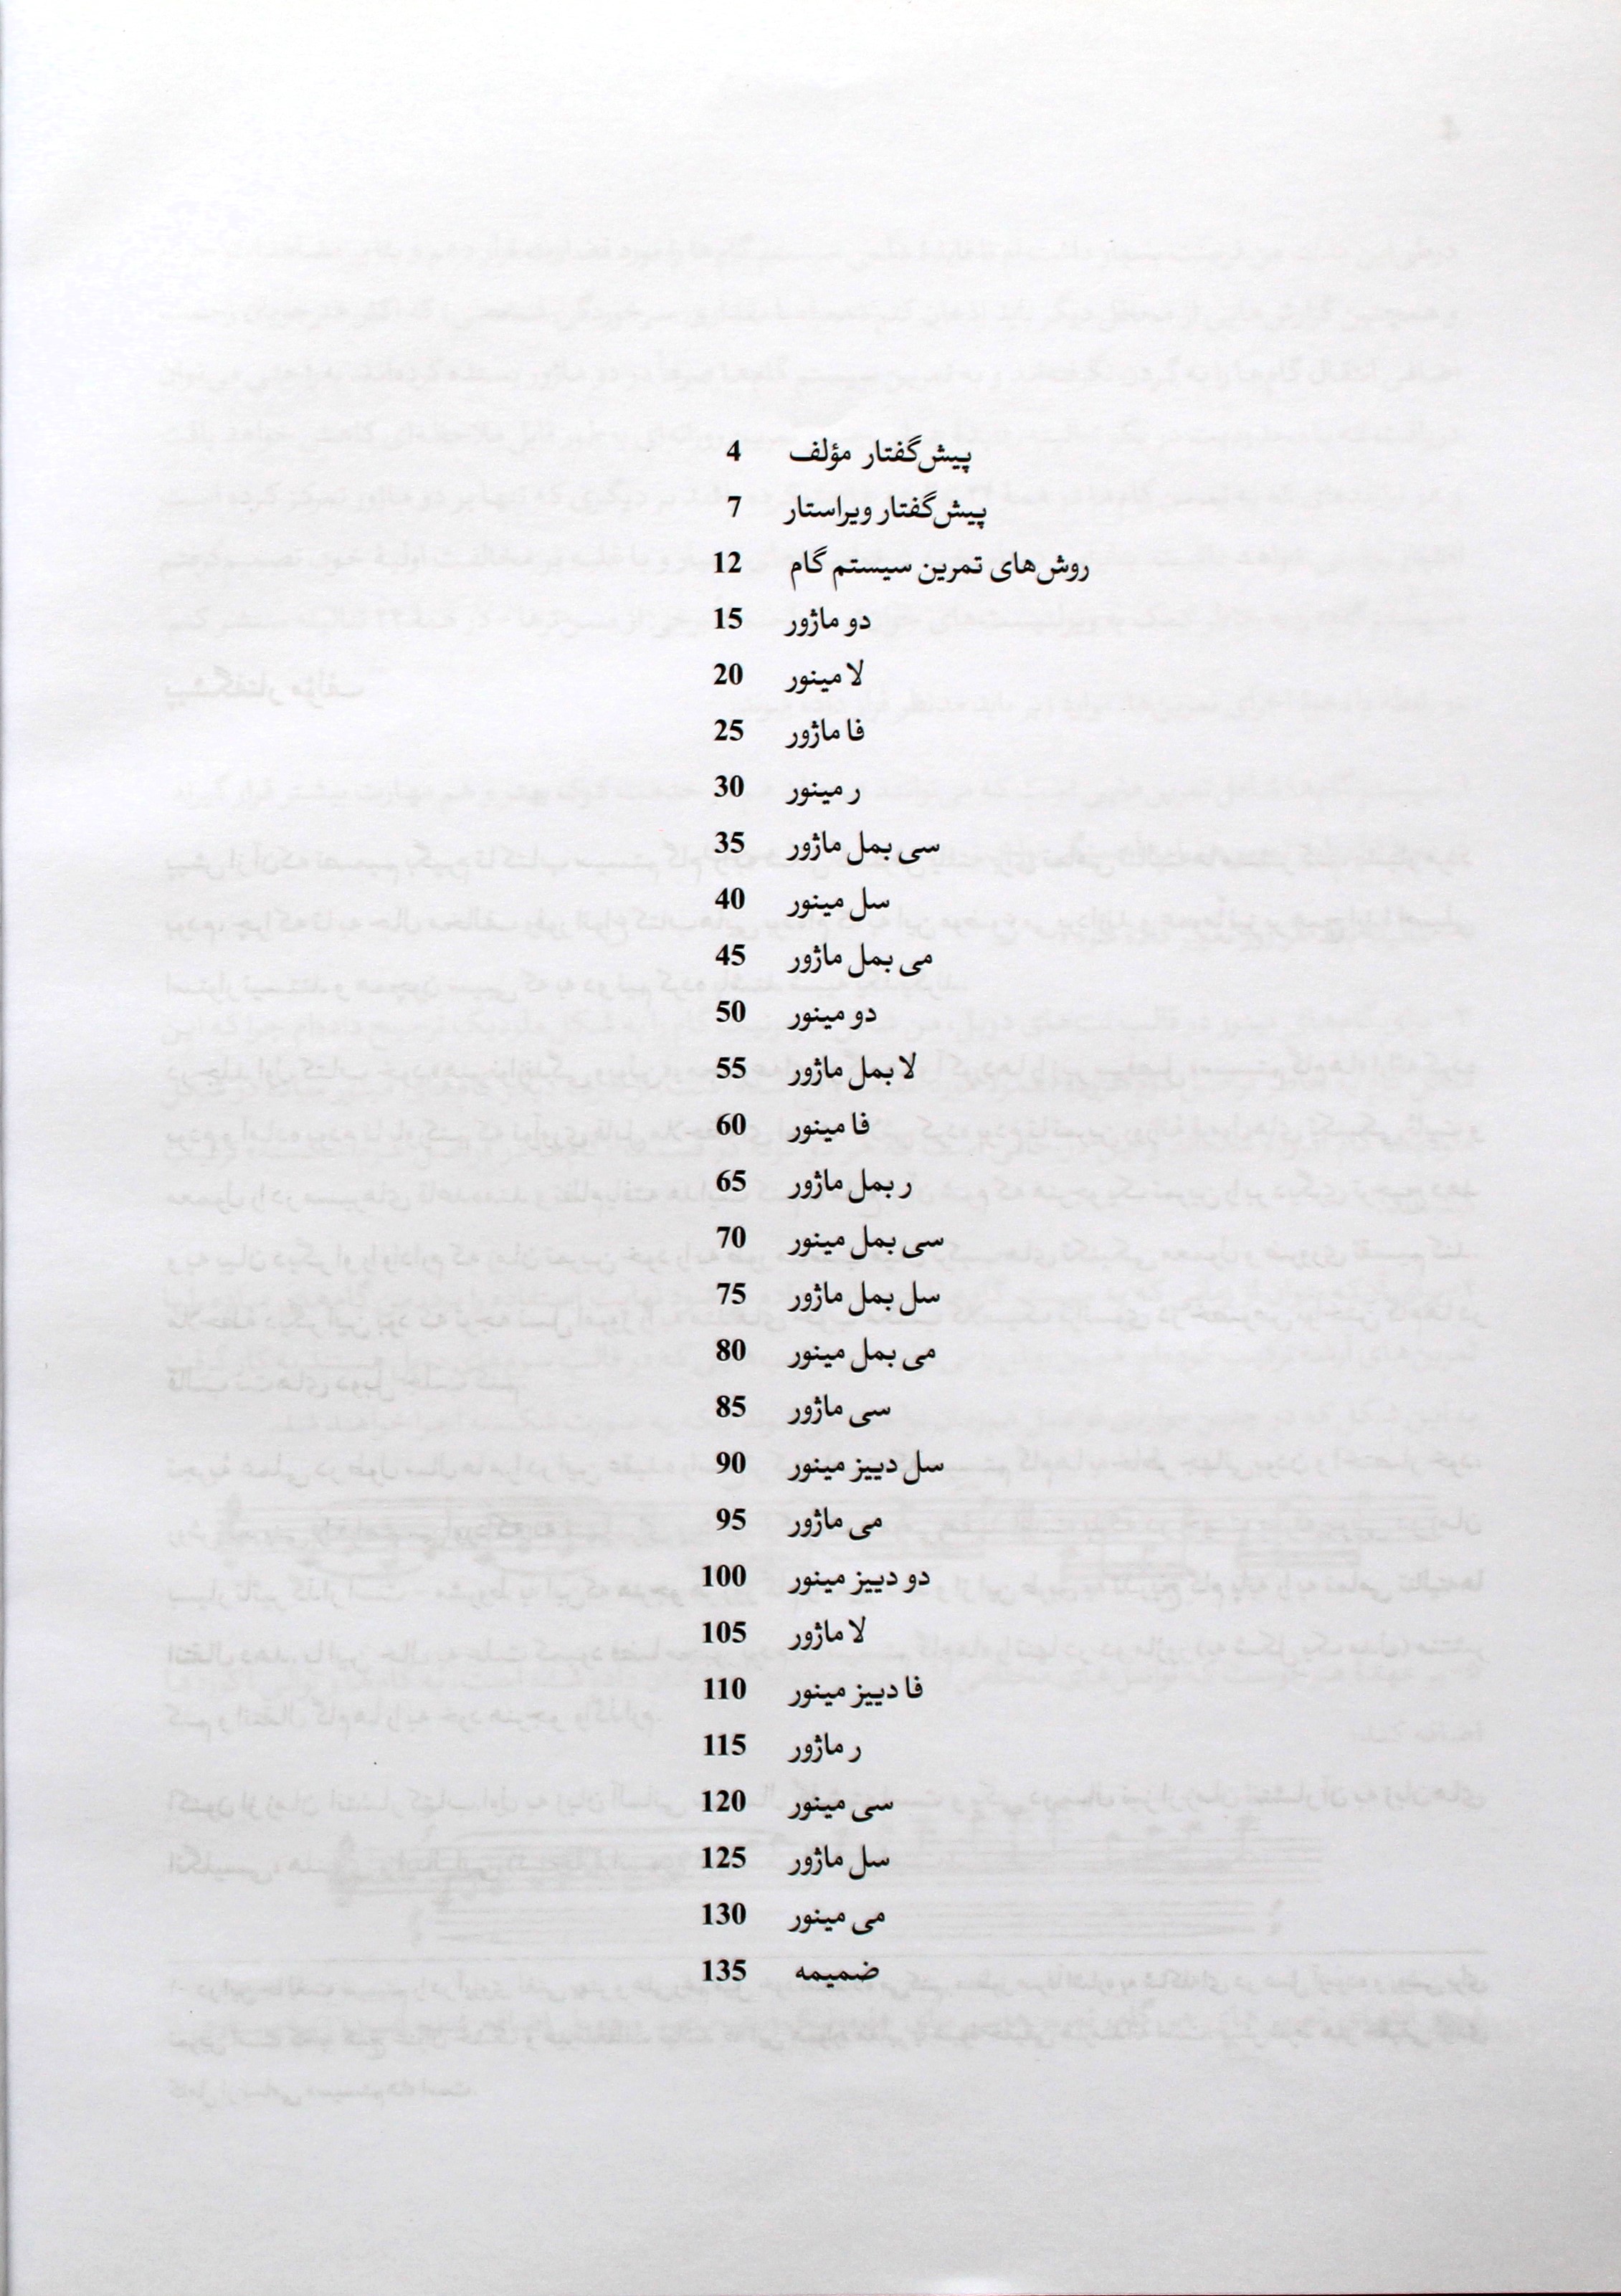 پیش‌گفتار مؤلف 4
پیش‌گفتار ویراستار 7
روش‌های تمرین سیستم گام 12
دو ماژور 15
لا مینور 20
فا ماژور 25
ر مینور 30
سی بمل ماژور 35
سل مینور 40
می بمل ماژور 45
دو مینور 50
لا بمل ماژور 55
فا مینور 60
ر بمل ماژور 65
سی بمل مینور 70
سل بمل ماژور 75
می بمل مینور 80
سی ماژور 85
سل دییز مینور 90
می ماژور 95
دو دییز مینور 100
لا ماژور 105
فا دییز مینور 110
ر ماژور 115
سی مینور 120
سل ماژور 125
می مینور 130
ضمیمه 135